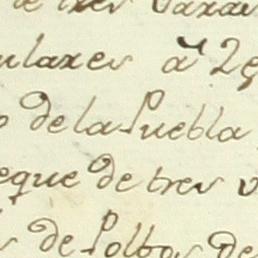 de tres varas
ulares a 2
o de la Puebla
eque de tres v
de Polbos de